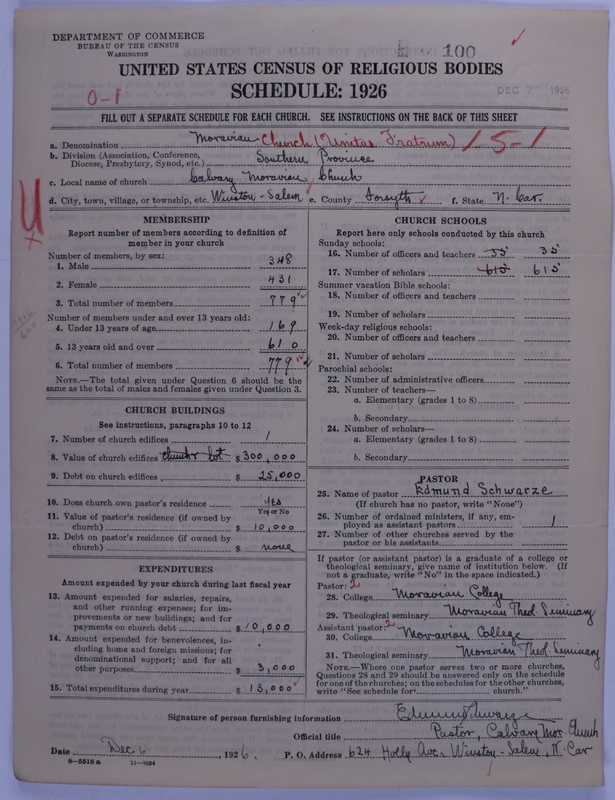 DEPARTMENT OF COMMERCE
BUREAU OF THE CENSUS
WASHINGTON
100
UNITED STATES CENSUS OF RELIGIOUS BODIES
SCHEDULE: 1926
DEC 7 1926
0-1
FILL OUT A SEPARATE SCHEDULE FOR EACH CHURCH. SEE INSTRUCTIONS ON THE BACK OF THIS SHEET
a. Denomination Moravian Church (Unitas Fratrum) 1-5-1
b. Division (Association, Conference, Diocese, Presbytery, Synod, etc.) Southern Province
c. Local name of church Calvary Moravian Church
d. City, town, village, or township, etc. Winston-Salem e. County Forsyth f. State N. Car.
MEMBERSHIP
Report number of members according to definition of
member in your church
Number of members, by sex:
1. Male 348
2. Female 431
3. Total number of members 779
Number of members under and over 13 years old:
4. Under 13 years of age 169
5. 13 years old and over 610
6. Total number of members 779
NOTE.—The total given under Question 6 should be the
same as the total of males and females given under Question 3.
CHURCH BUILDINGS
See instructions, paragraphs 10 to 12
7. Number of church edifices 1
8. Value of church edifices church & lot $ 300,000
9. Debt on church edifices $ 25,000
10. Does church own pastor's residence Yes
Yes or No
11. Value of pastor's residence (if owned by
church) $ 10,000
12. Debt on pastor's residence (if owned by
church) $ none
EXPENDITURES
Amount expended by your church during last fiscal year
13. Amount expended for salaries, repairs,
and other running expenses; for im-
provements or new buildings; and for
payments on church debt $ 10,000
14. Amount expended for benevolences, in-
cluding home and foreign missions; for
denominational support; and for all
other purposes $ 3,000
15. Total expenditures during year $ 13,000
CHURCH SCHOOLS
Report here only schools conducted by this church
Sunday schools:
16. Number of officers and teachers 55 35
17. Number of scholars 615 615
Summer vacation Bible schools:
18. Number of officers and teachers
19. Number of scholars
Week-day religious schools:
20. Number of officers and teachers
21. Number of scholars
Parochial schools:
22. Number of administrative officers
23. Number of teachers—
a. Elementary (grades 1 to 8)
b. Secondary
24. Number of scholars—
a. Elementary (grades 1 to 8)
b. Secondary
PASTOR
25. Name of pastor Edmund Schwarze
(If church has no pastor, write "None")
26. Number of ordained ministers, if any, em-
ployed as assistant pastors 1
27. Number of other churches served by the
pastor or his assistants
If pastor (or assistant pastor) is a graduate of a college or
theological seminary, give name of institution below. (If
not a graduate, write "No" in the space indicated.)
Pastor: 2
28. College Moravian College
29. Theological seminary Moravian Theol. Seminary
Assistant pastor: 2
30. College Moravian College
31. Theological seminary Moravian Theol. Seminary
NOTE.—Where one pastor serves two or more churches,
Questions 28 and 29 should be answered only on the schedule
for one of the churches; on the schedules for the other churches,
write "See schedule for church."
Signature of person furnishing information Edmund Schwarze
Official title Pastor, Calvary Mor. Church
Date Dec. 6, 1926. P. O. Address 624 Holly Ave. Winston-Salem, N. Car
8—5518a 11—9054